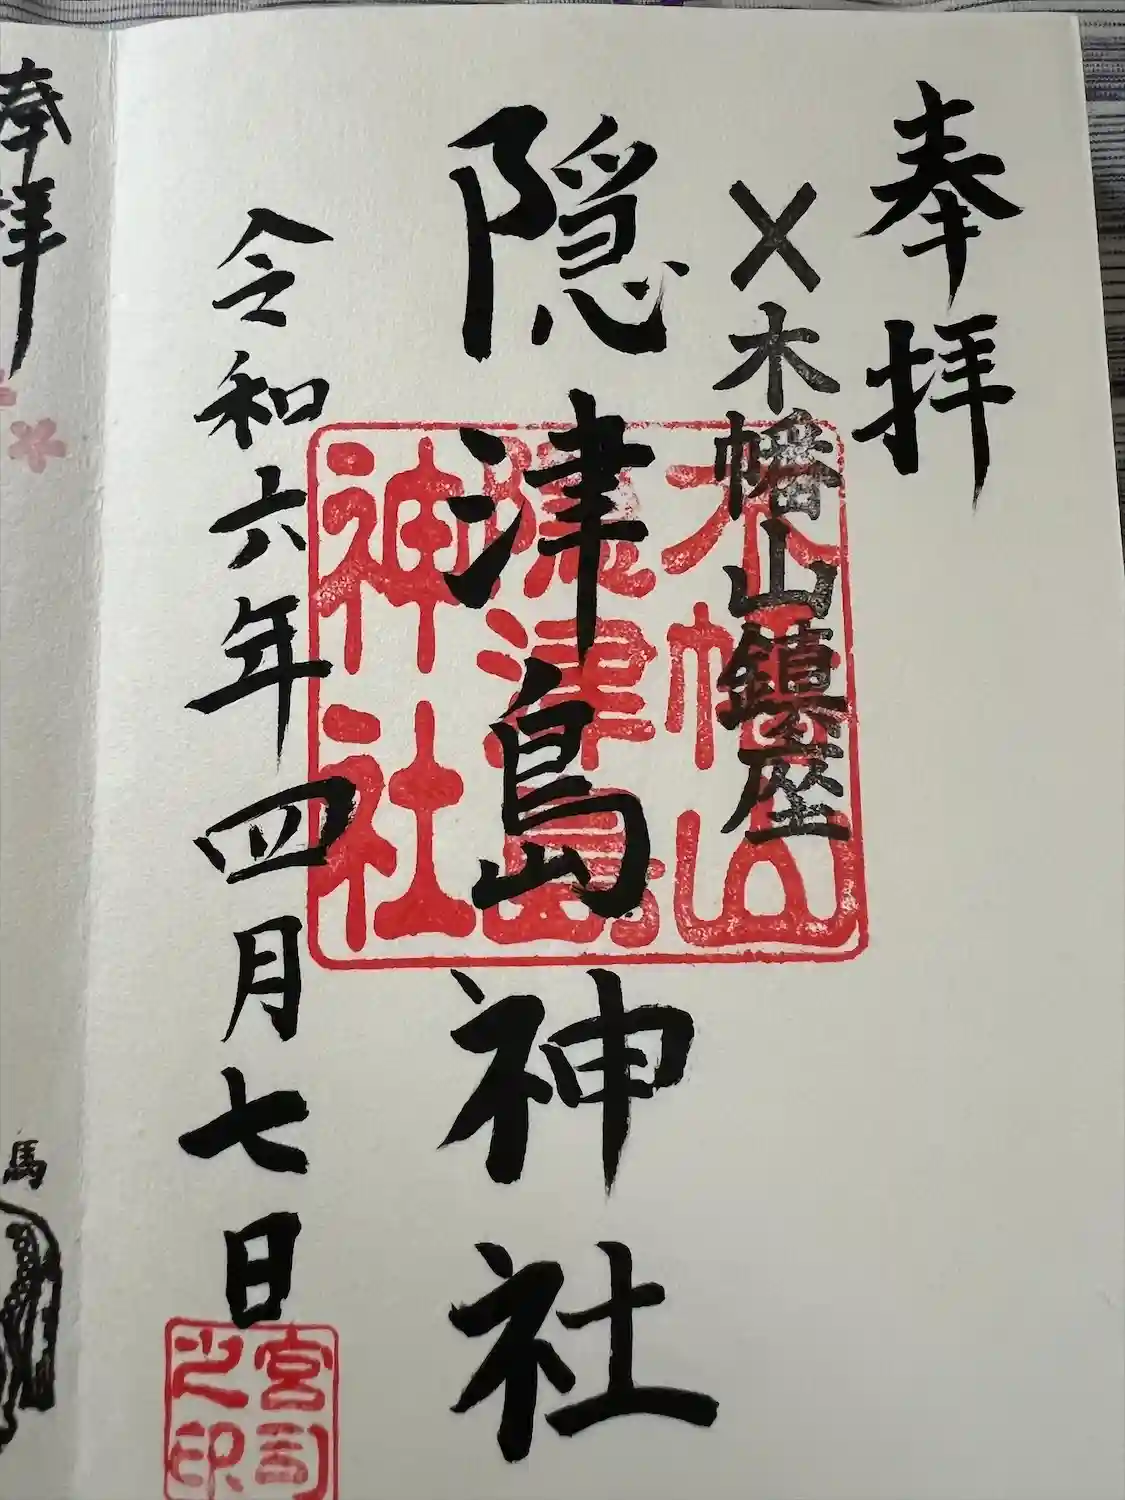 奉拝
木幡山鎮座
隠津島神社
令和六年四月七日
木幡山
隠津島
神社
宮司
之印
奉拝
馬